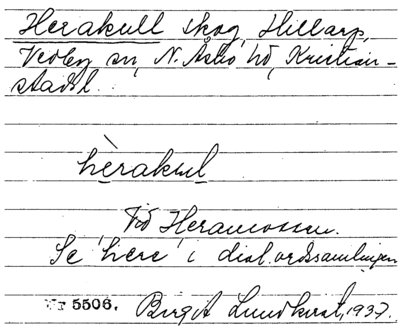 Herakull skog, Hillarp,
Vedby sn, N. Åsbo hd, Kristian-
stads l.
hèrakul
Vid Heramossen.
Se 'here' i dial.ordsamlingen
Nr 5506. Birgit Lundkvist, 1937.